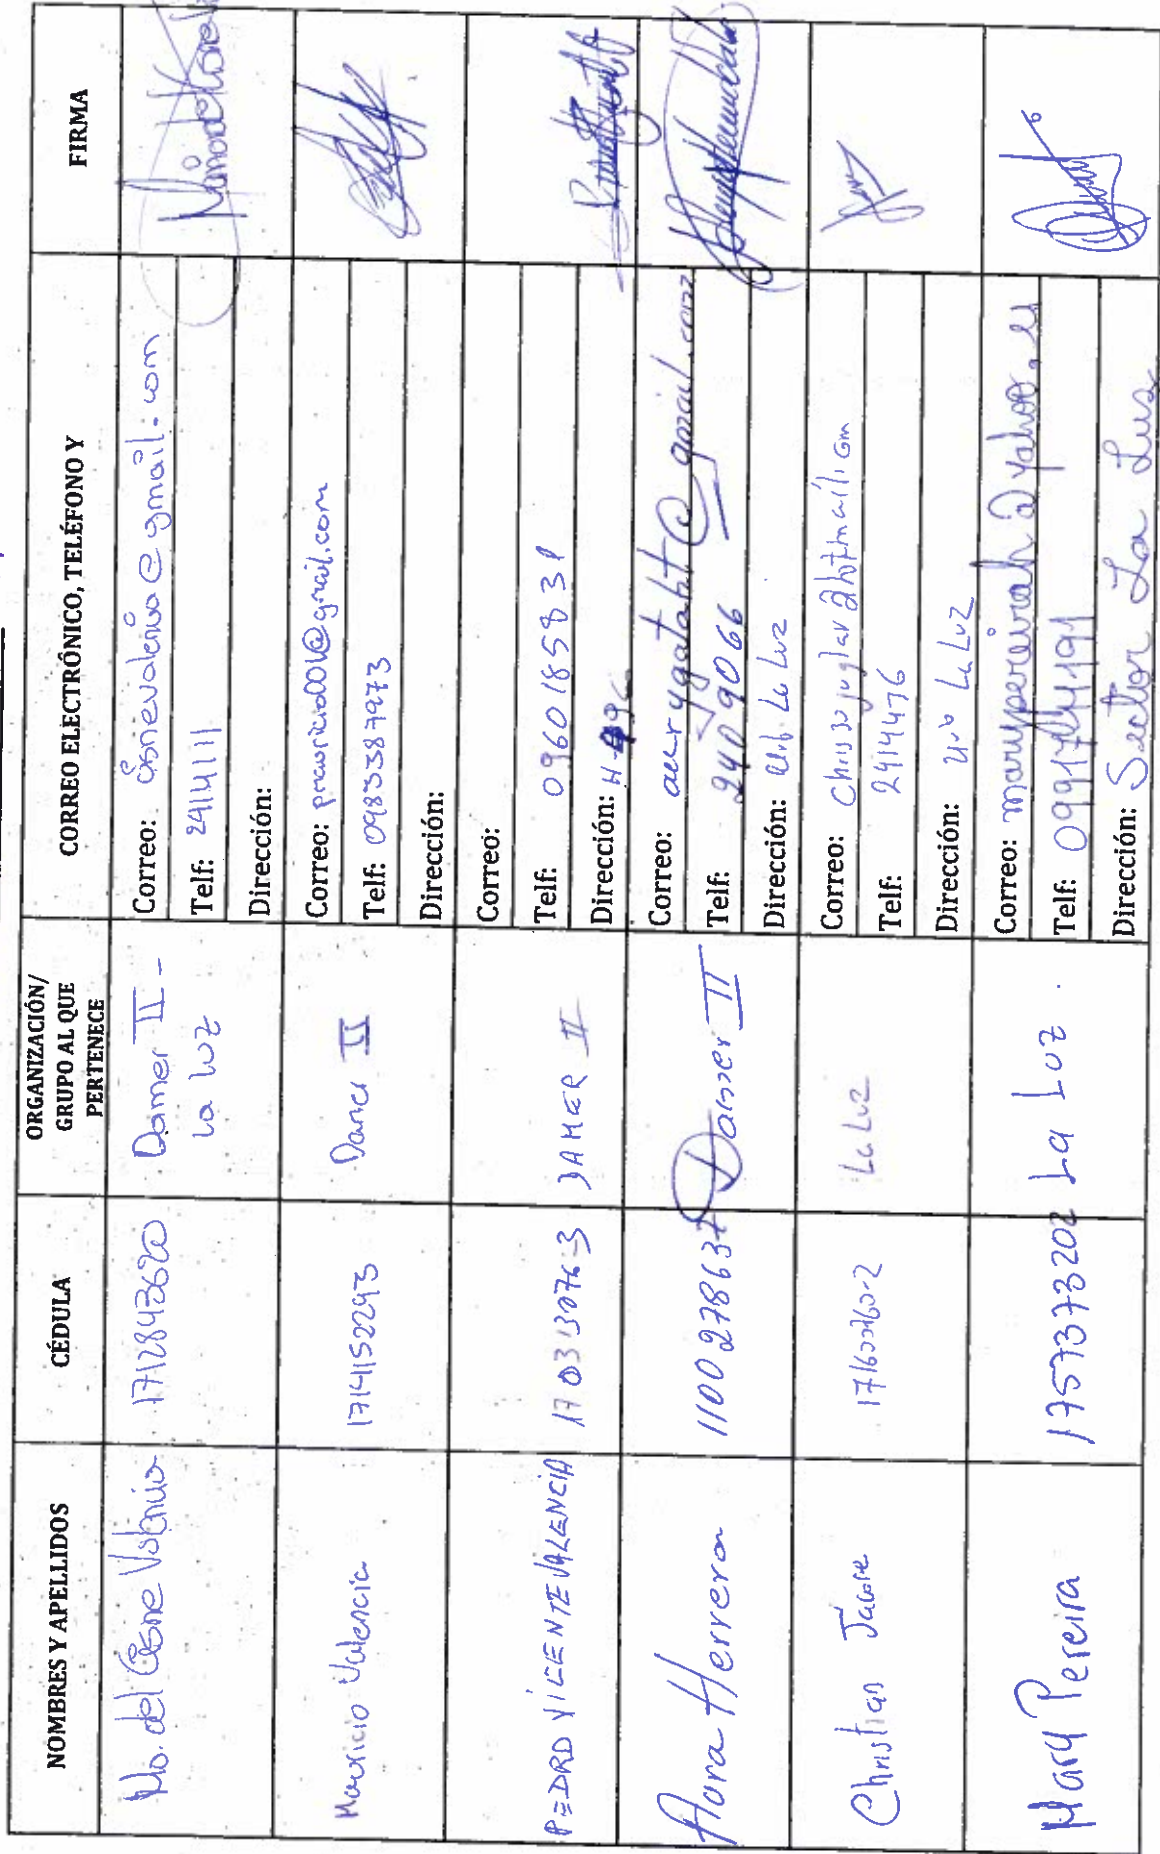 NOMBRES Y APELLIDOS
CÉDULA
ORGANIZACIÓN/
GRUPO AL QUE
PERTENECE
CORREO ELECTRÓNICO, TELÉFONO Y
FIRMA
Ma. del Cisne Valencia
1712843620
Damer II -
La Luz
Correo: cisnevalencia@gmail.com
Telf: 2414111
Dirección:
Mauricio Valencia
1714152293
Damer II
Correo: pmauricio001@gmail.com
Telf: 0983387973
Dirección:
PEDRO VICENTE VALENCIA
170313076-3
DAMER II
Correo:
Telf: 0960185831
Dirección:
Aura Herrera
1100278637
Damer II
Correo:
Telf: 2409066
Dirección: Urb La Luz
Christian
La Luz
Correo:
Telf: 2414476
Dirección: Urb La Luz
Mary Pereira
1757373202
La Luz.
Correo: marypereirah@yahoo.es
Telf:
Dirección: Sector La Lus